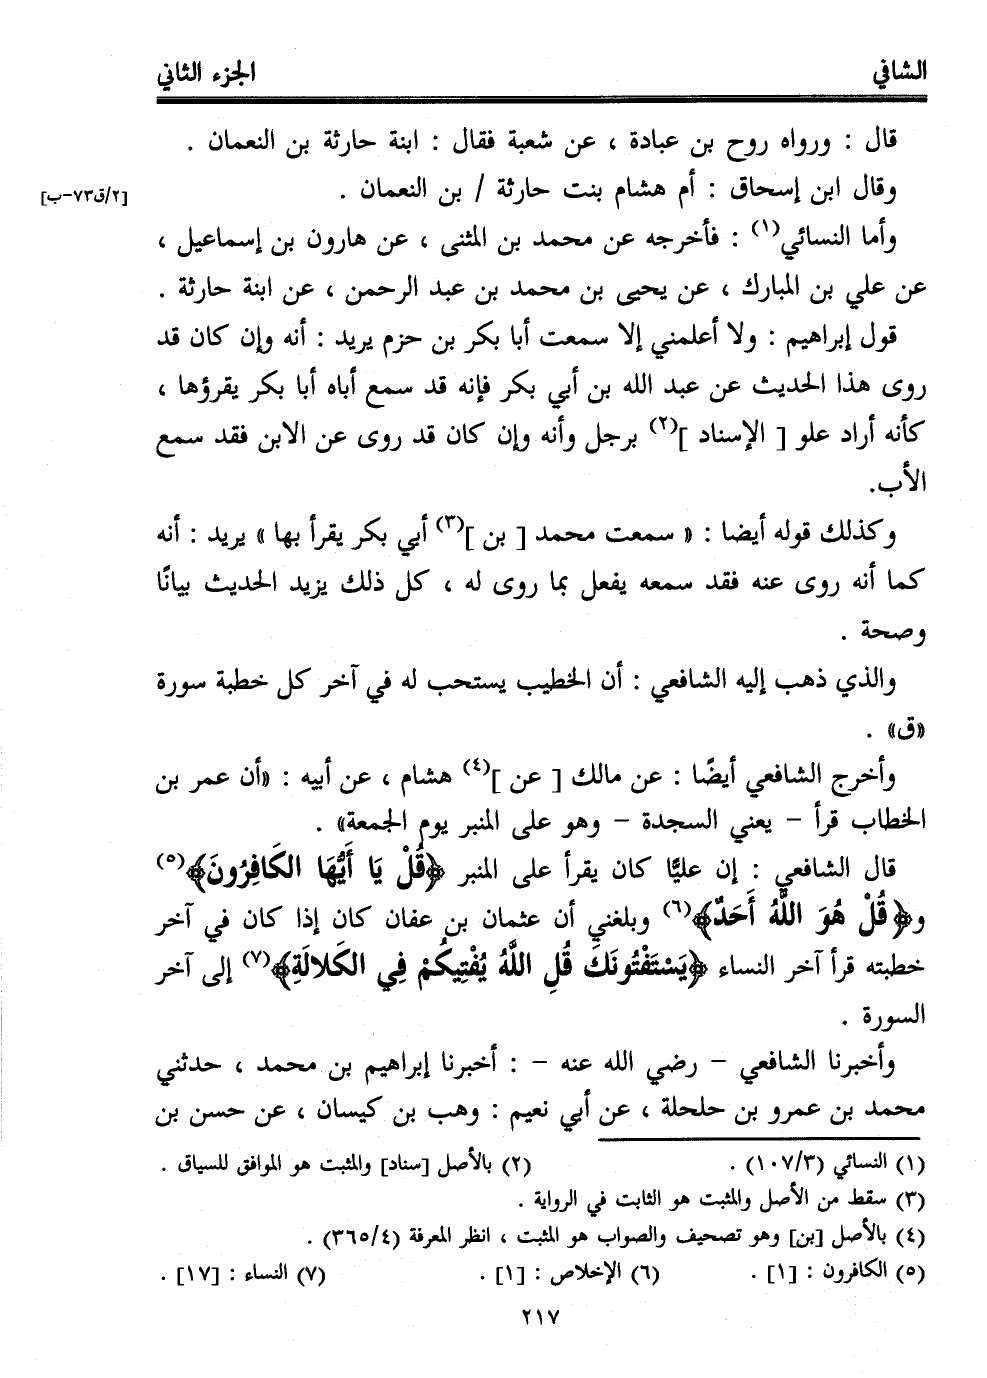 الشافي الجزء الثاني
قال : ورواه روح بن عبادة ، عن شعبة فقال : ابنة حارثة بن النعمان .
وقال ابن إسحاق : أم هشام بنت حارثة / بن النعمان . [٢/ق٧٣-ب]
وأما النسائي(١) : فأخرجه عن محمد بن المثنى ، عن هارون بن إسماعيل ،
عن علي بن المبارك ، عن يحيى بن محمد بن عبد الرحمن ، عن ابنة حارثة .
قول إبراهيم : ولا أعلمني إلا سمعت أبا بكر بن حزم يريد : أنه وإن كان قد
روى هذا الحديث عن عبد الله بن أبي بكر فإنه قد سمع أباه أبا بكر يقرؤها ،
كأنه أراد علو [ الإسناد ](٢) برجل وأنه وإن كان قد روى عن الابن فقد سمع
الأب.
وكذلك قوله أيضا : « سمعت محمد [ بن ](٣) أبي بكر يقرأ بها » يريد : أنه
كما أنه روى عنه فقد سمعه يفعل بما روى له ، كل ذلك يزيد الحديث بيانًا
وصحة .
والذي ذهب إليه الشافعي : أن الخطيب يستحب له في آخر كل خطبة سورة
«ق» .
وأخرج الشافعي أيضًا : عن مالك [ عن ](٤) هشام ، عن أبيه : «أن عمر بن
الخطاب قرأ – يعني السجدة – وهو على المنبر يوم الجمعة» .
قال الشافعي : إن عليًّا كان يقرأ على المنبر ﴿قُلْ يَا أَيُّهَا الكَافِرُونَ﴾(٥)
و﴿قُلْ هُوَ اللَّهُ أَحَدٌ﴾(٦) وبلغني أن عثمان بن عفان كان إذا كان في آخر
خطبته قرأ آخر النساء ﴿يَسْتَفْتُونَكَ قُلِ اللَّهُ يُفْتِيكُمْ فِي الكَلالَةِ﴾(٧) إلى آخر
السورة .
وأخبرنا الشافعي – رضي الله عنه – : أخبرنا إبراهيم بن محمد ، حدثني
محمد بن عمرو بن حلحلة ، عن أبي نعيم : وهب بن كيسان ، عن حسن بن
(١) النسائي (١٠٧/٣) . (٢) بالأصل [سناد] والمثبت هو الموافق للسياق .
(٣) سقط من الأصل والمثبت هو الثابت في الرواية .
(٤) بالأصل [بن] وهو تصحيف والصواب هو المثبت ، انظر المعرفة (٣٦٥/٤) .
(٥) الكافرون : [١] . (٦) الإخلاص : [١] . (٧) النساء : [١٧] .
٢١٧